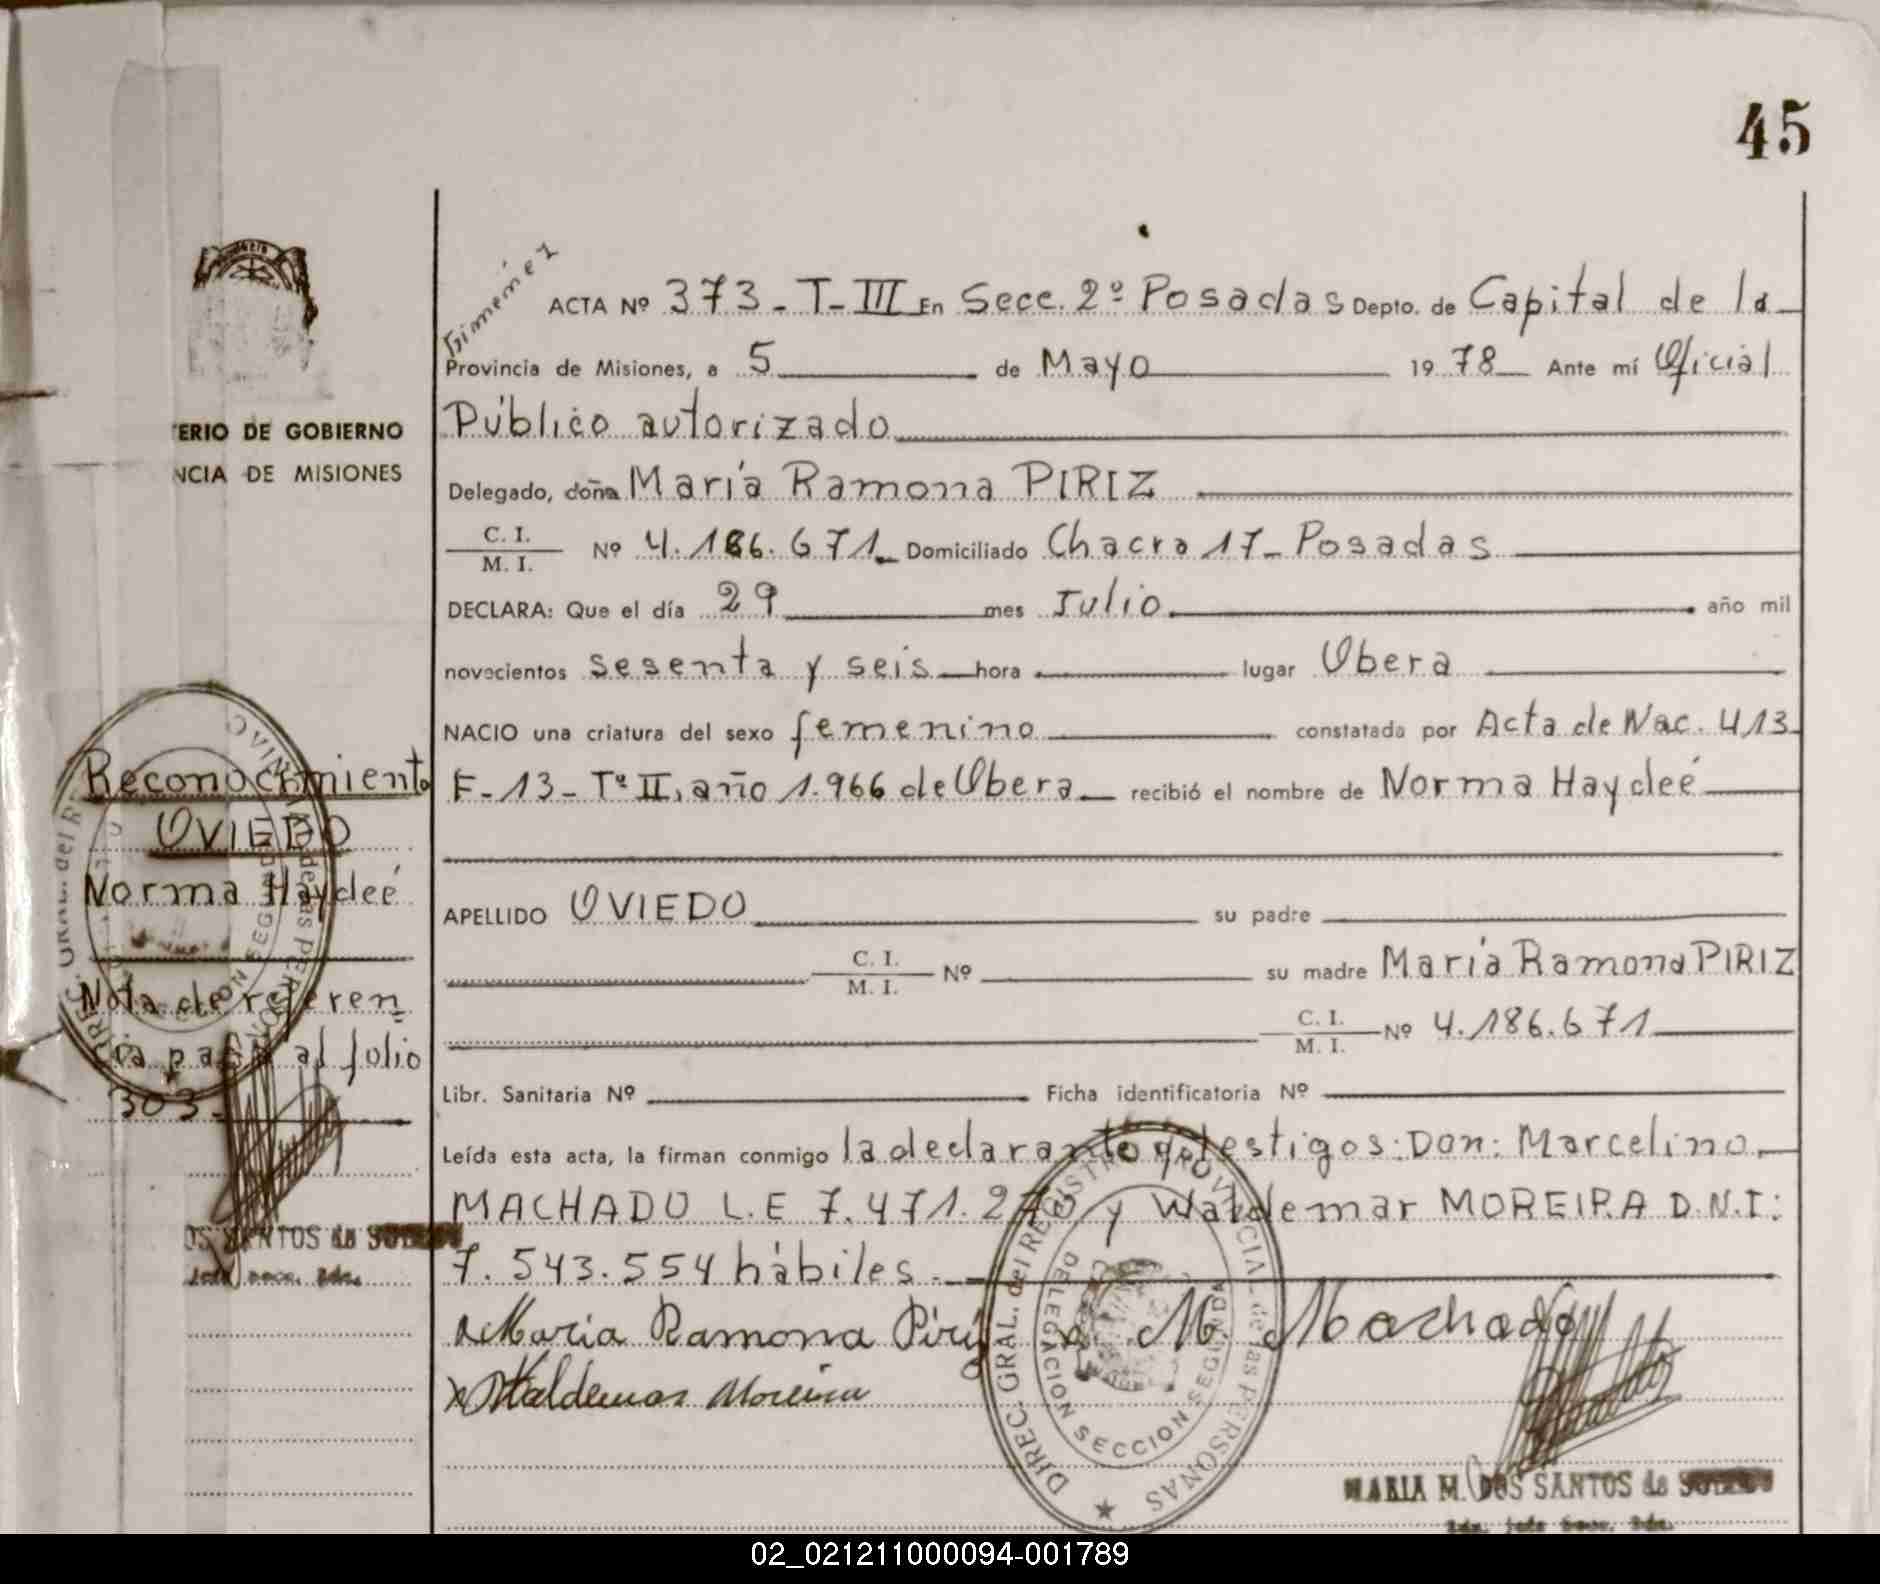 45
Gimenez
ACTA Nº 373 - T - III En Secc. 2º Posadas Depto. de Capital de la
Provincia de Misiones, a 5 de Mayo 1978 Ante mí Oficial
Público autorizado
Delegado, doña María Ramona PIRIZ
C. I.
M. I. Nº 4.186.671 Domiciliado Chacra 17 - Posadas
DECLARA: Que el día 29 mes Julio año mil
novecientos sesenta y seis hora lugar Obera
NACIO una criatura del sexo femenino constatada por Acta de Nac. 413
F - 13 - Tº II, año 1.966 de Obera recibió el nombre de Norma Haydeé
APELLIDO OVIEDO su padre
C. I.
M. I. Nº su madre María Ramona PIRIZ
C. I.
M. I. Nº 4.186.671
Libr. Sanitaria Nº Ficha identificatoria Nº
Leída esta acta, la firman conmigo la declarante y testigos: Don: Marcelino
MACHADO L.E 7.471.270 y Waldemar MOREIRA D.N.I:
7.543.554 hábiles.
x Maria Ramona Piriz x M. Machado
x Waldemar Moreira
DIREC. GRAL. del REGISTRO PROVINCIAL de las PERSONAS
DELEGACION SECCION SEGUNDA
MARIA M. DOS SANTOS de
2da. Jefe Secc. 2da.
ERIO DE GOBIERNO
NCIA DE MISIONES
Reconocimiento
OVIEDO
Norma Haydeé
Nota de referen
cia pasa al folio
303-
OS SANTOS de
Jefe Secc. 2da.
02_021211000094-001789